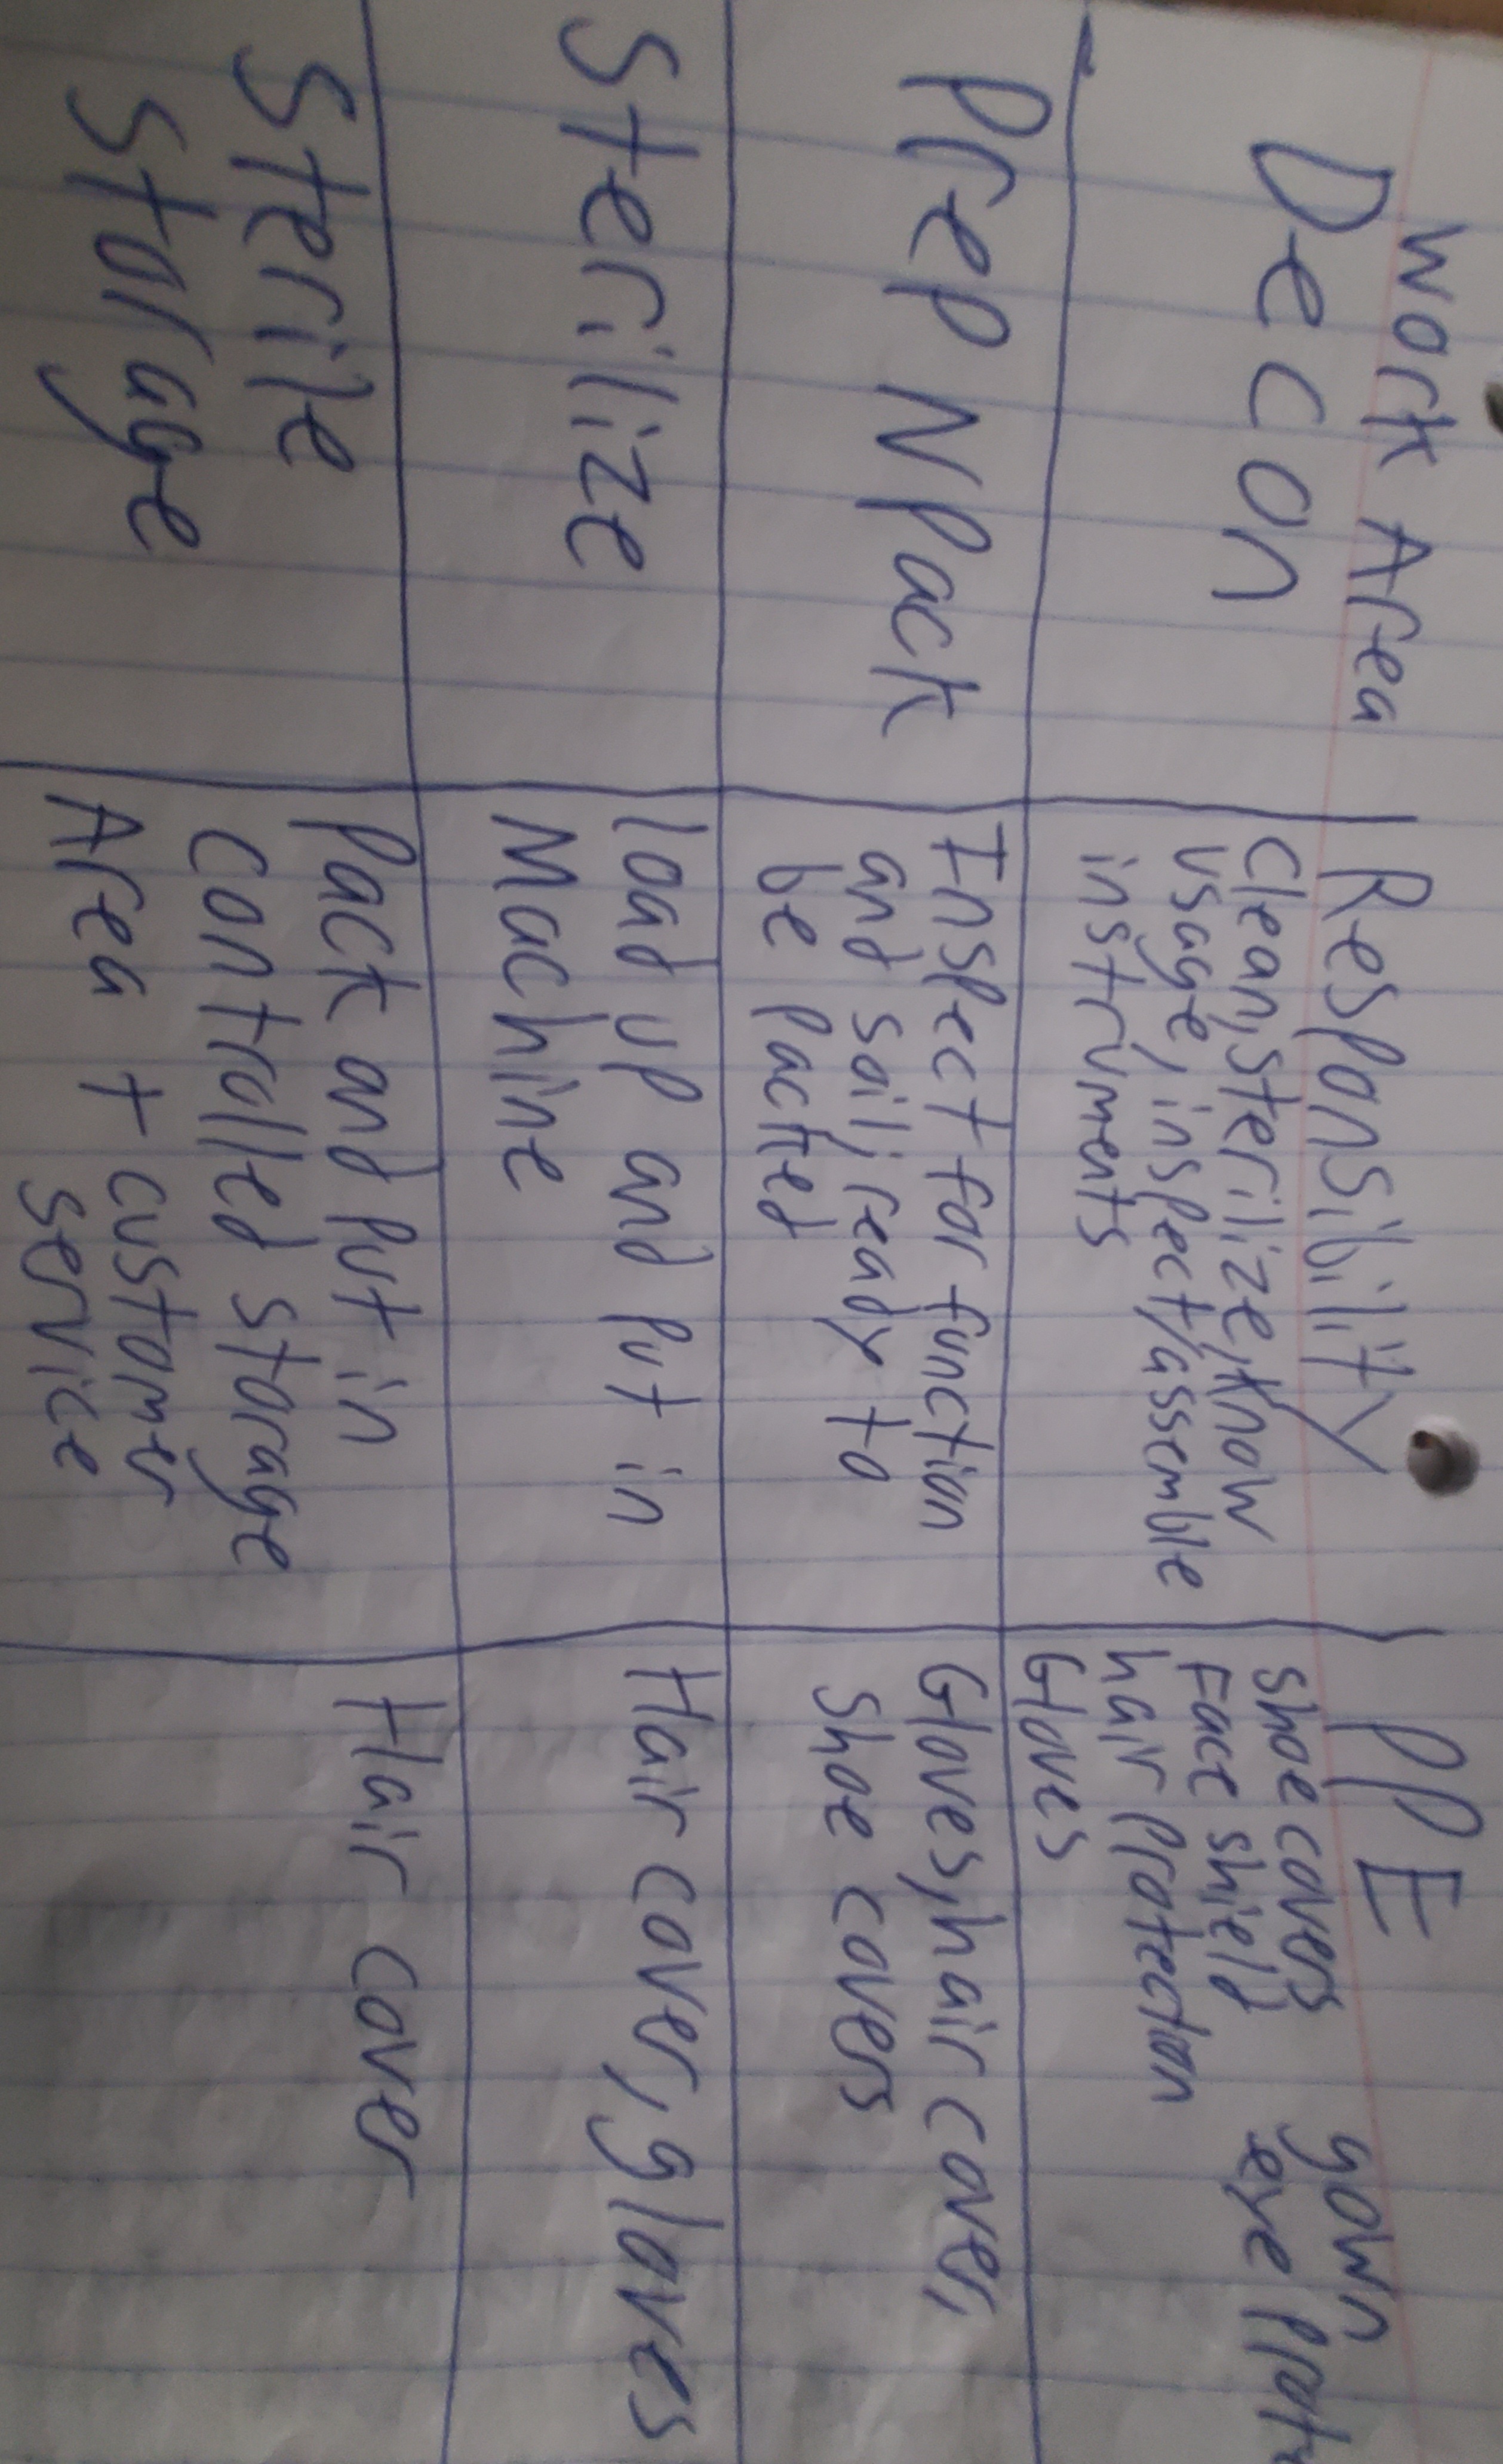 Work Area Responsibility PPE
Decon
Clean, sterilize, know
usage, inspect/assemble
instruments
shoe covers gown
Face shield eye
hair Protection
Gloves
Prep N Pack
Inspect for function
and soil, ready to
be Packed
Gloves, hair cover,
shoe covers
Sterilize
load up and Put in
Machine
Hair cover, gloves
Sterile
Storage
Pack and Put in
controlled storage
Area + customer
service
Hair cover